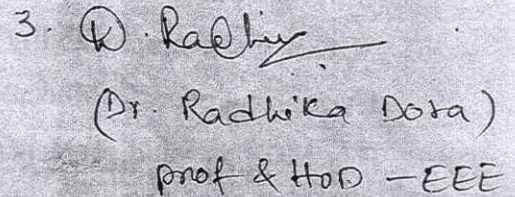 3. D. Radhi
(Dr. Radhika Dora)
prof & HOD - EEE